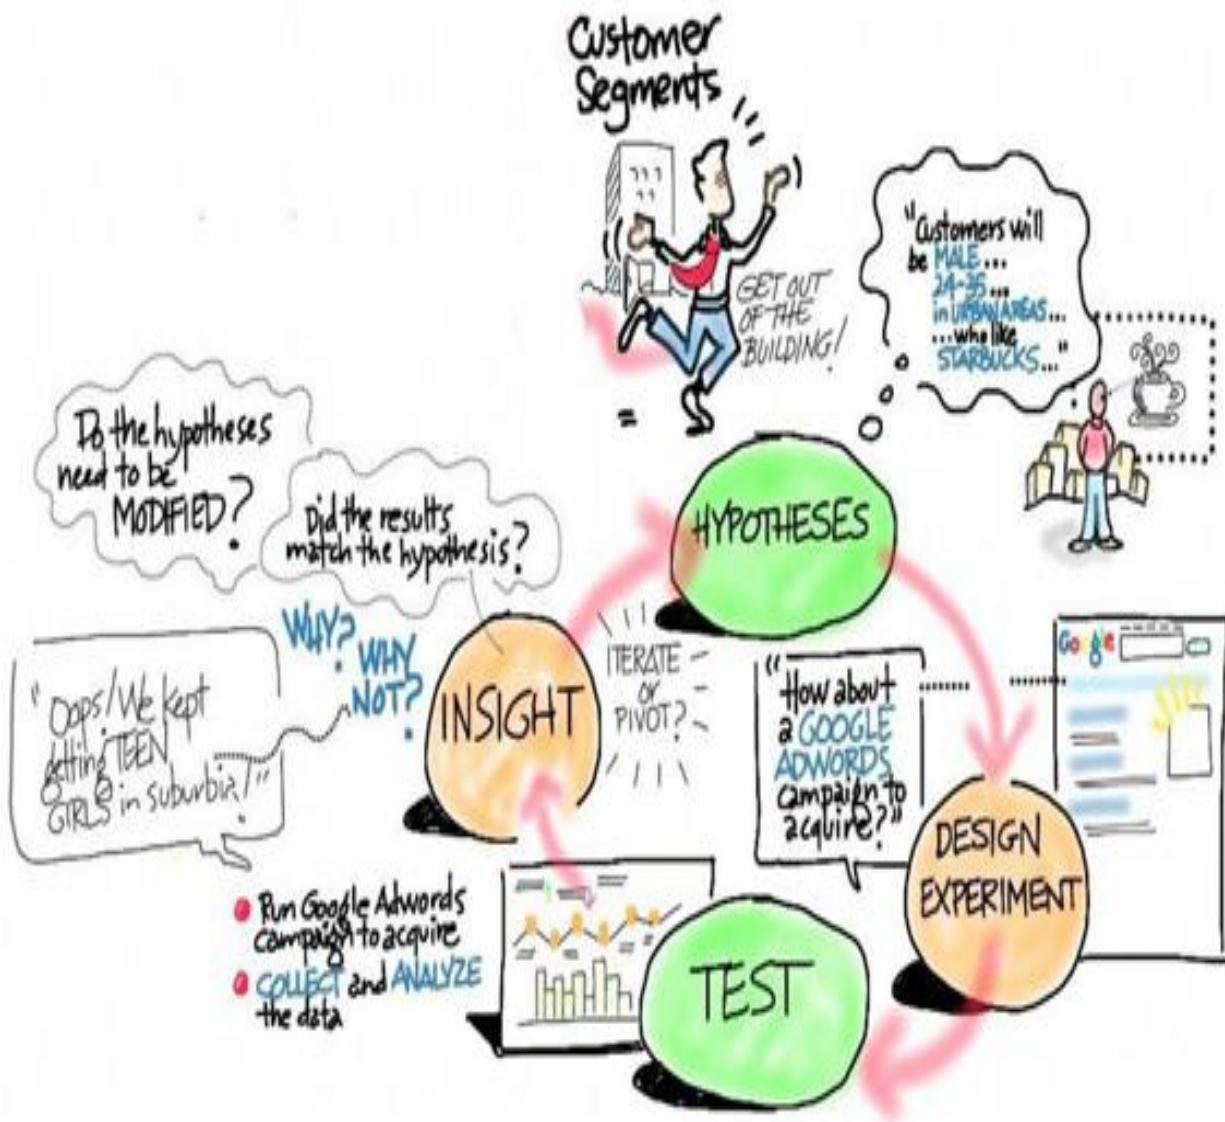 Customer
Segments
GET OUT
OF THE
BUILDING!
"Customers will
be MALE...
24-35...
in URBAN AREAS...
...who like
STARBUCKS..."
=
HYPOTHESES
Do the hypotheses
need to be
MODIFIED?
Did the results
match the hypothesis?
WHY?
WHY
NOT?
"Oops! We kept
getting TEEN
GIRLS in suburbia!"
INSIGHT
ITERATE
or
PIVOT?
"How about
a GOOGLE
ADWORDS
campaign to
acquire?"
Google
DESIGN
EXPERIMENT
• Run Google Adwords
campaign to acquire
• COLLECT and ANALYZE
the data
TEST